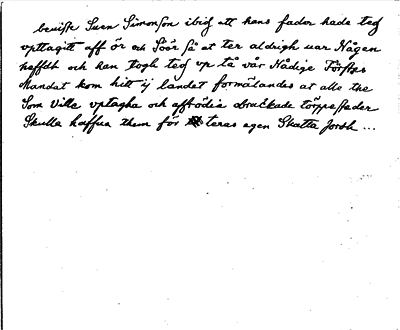 beuiste Suen Simonson ibid att hans fader hade ted
vpttagitt aff ör och Söör så at ter aldrigh uar Någen
heffdt och han togh ted vp tå vår Nådige Förstes
Mandat kom hitt ij landet formälandes at alle the
Som Ville vptagha och affödia obrackade torppestader
Skulla haffua them för teras egen Skatta Jordh ...